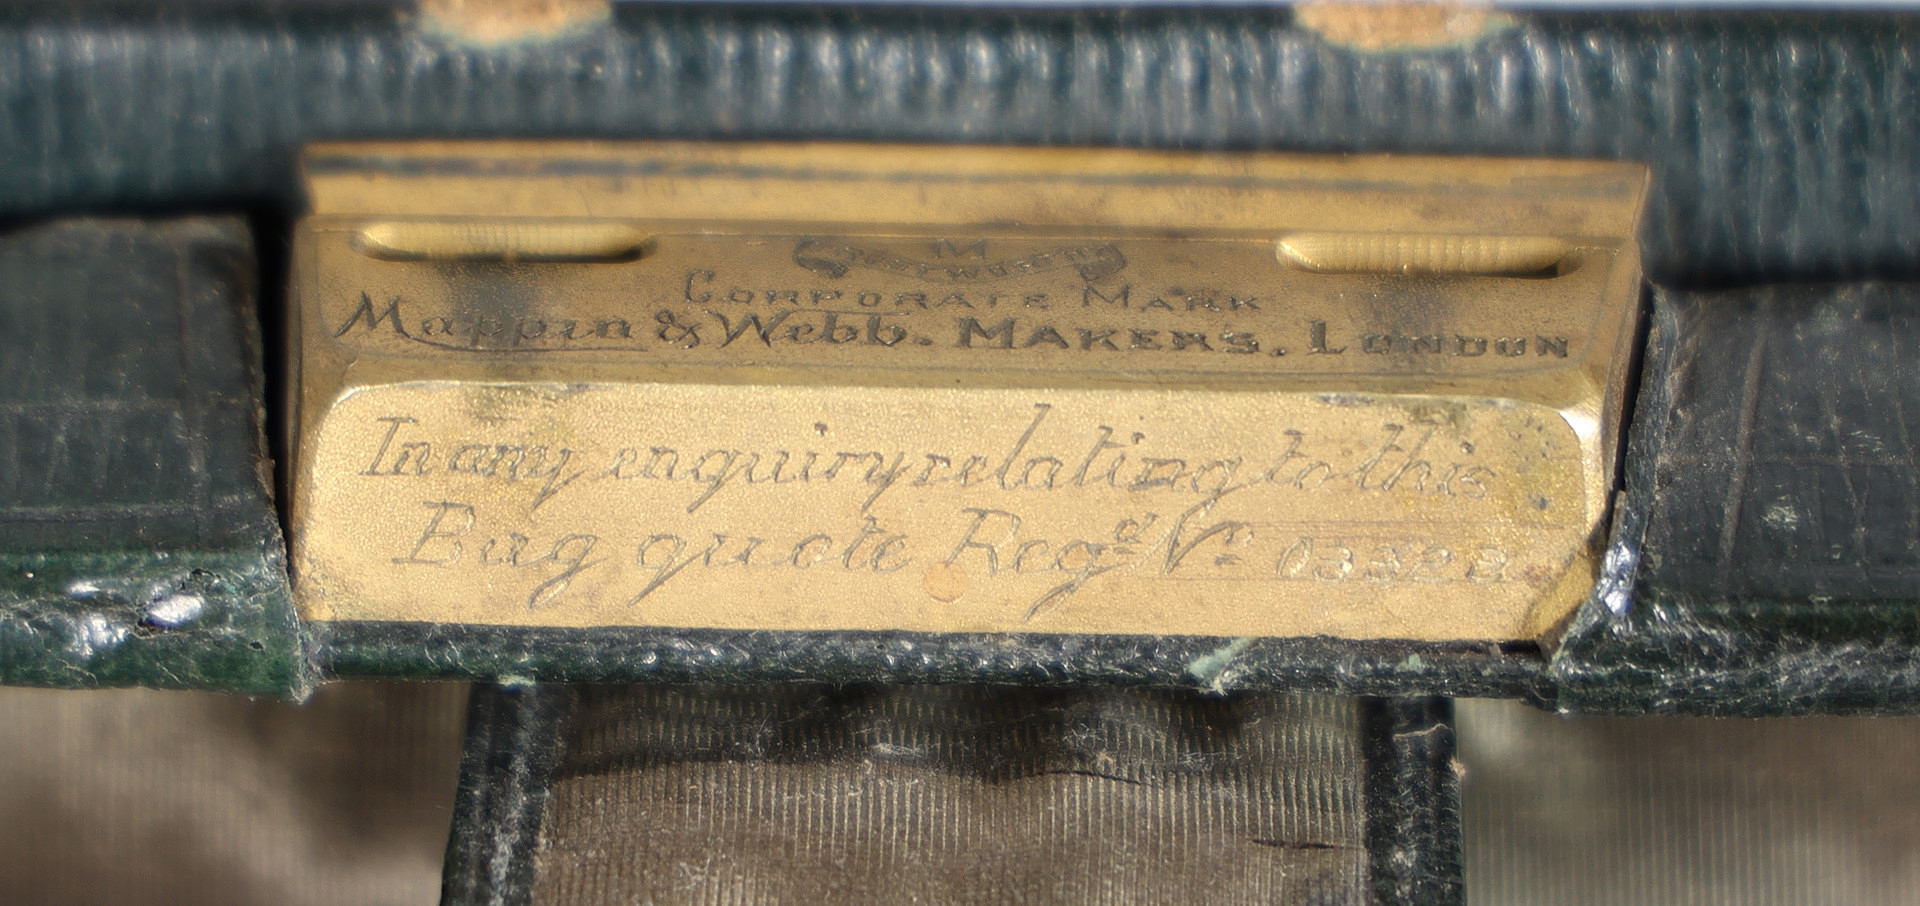 M
TRUSTWORTHY
CORPORATE MARK
Mappin & Webb. MAKERS. LONDON
In any enquiry relating to this
Bag quote Regd No 03328